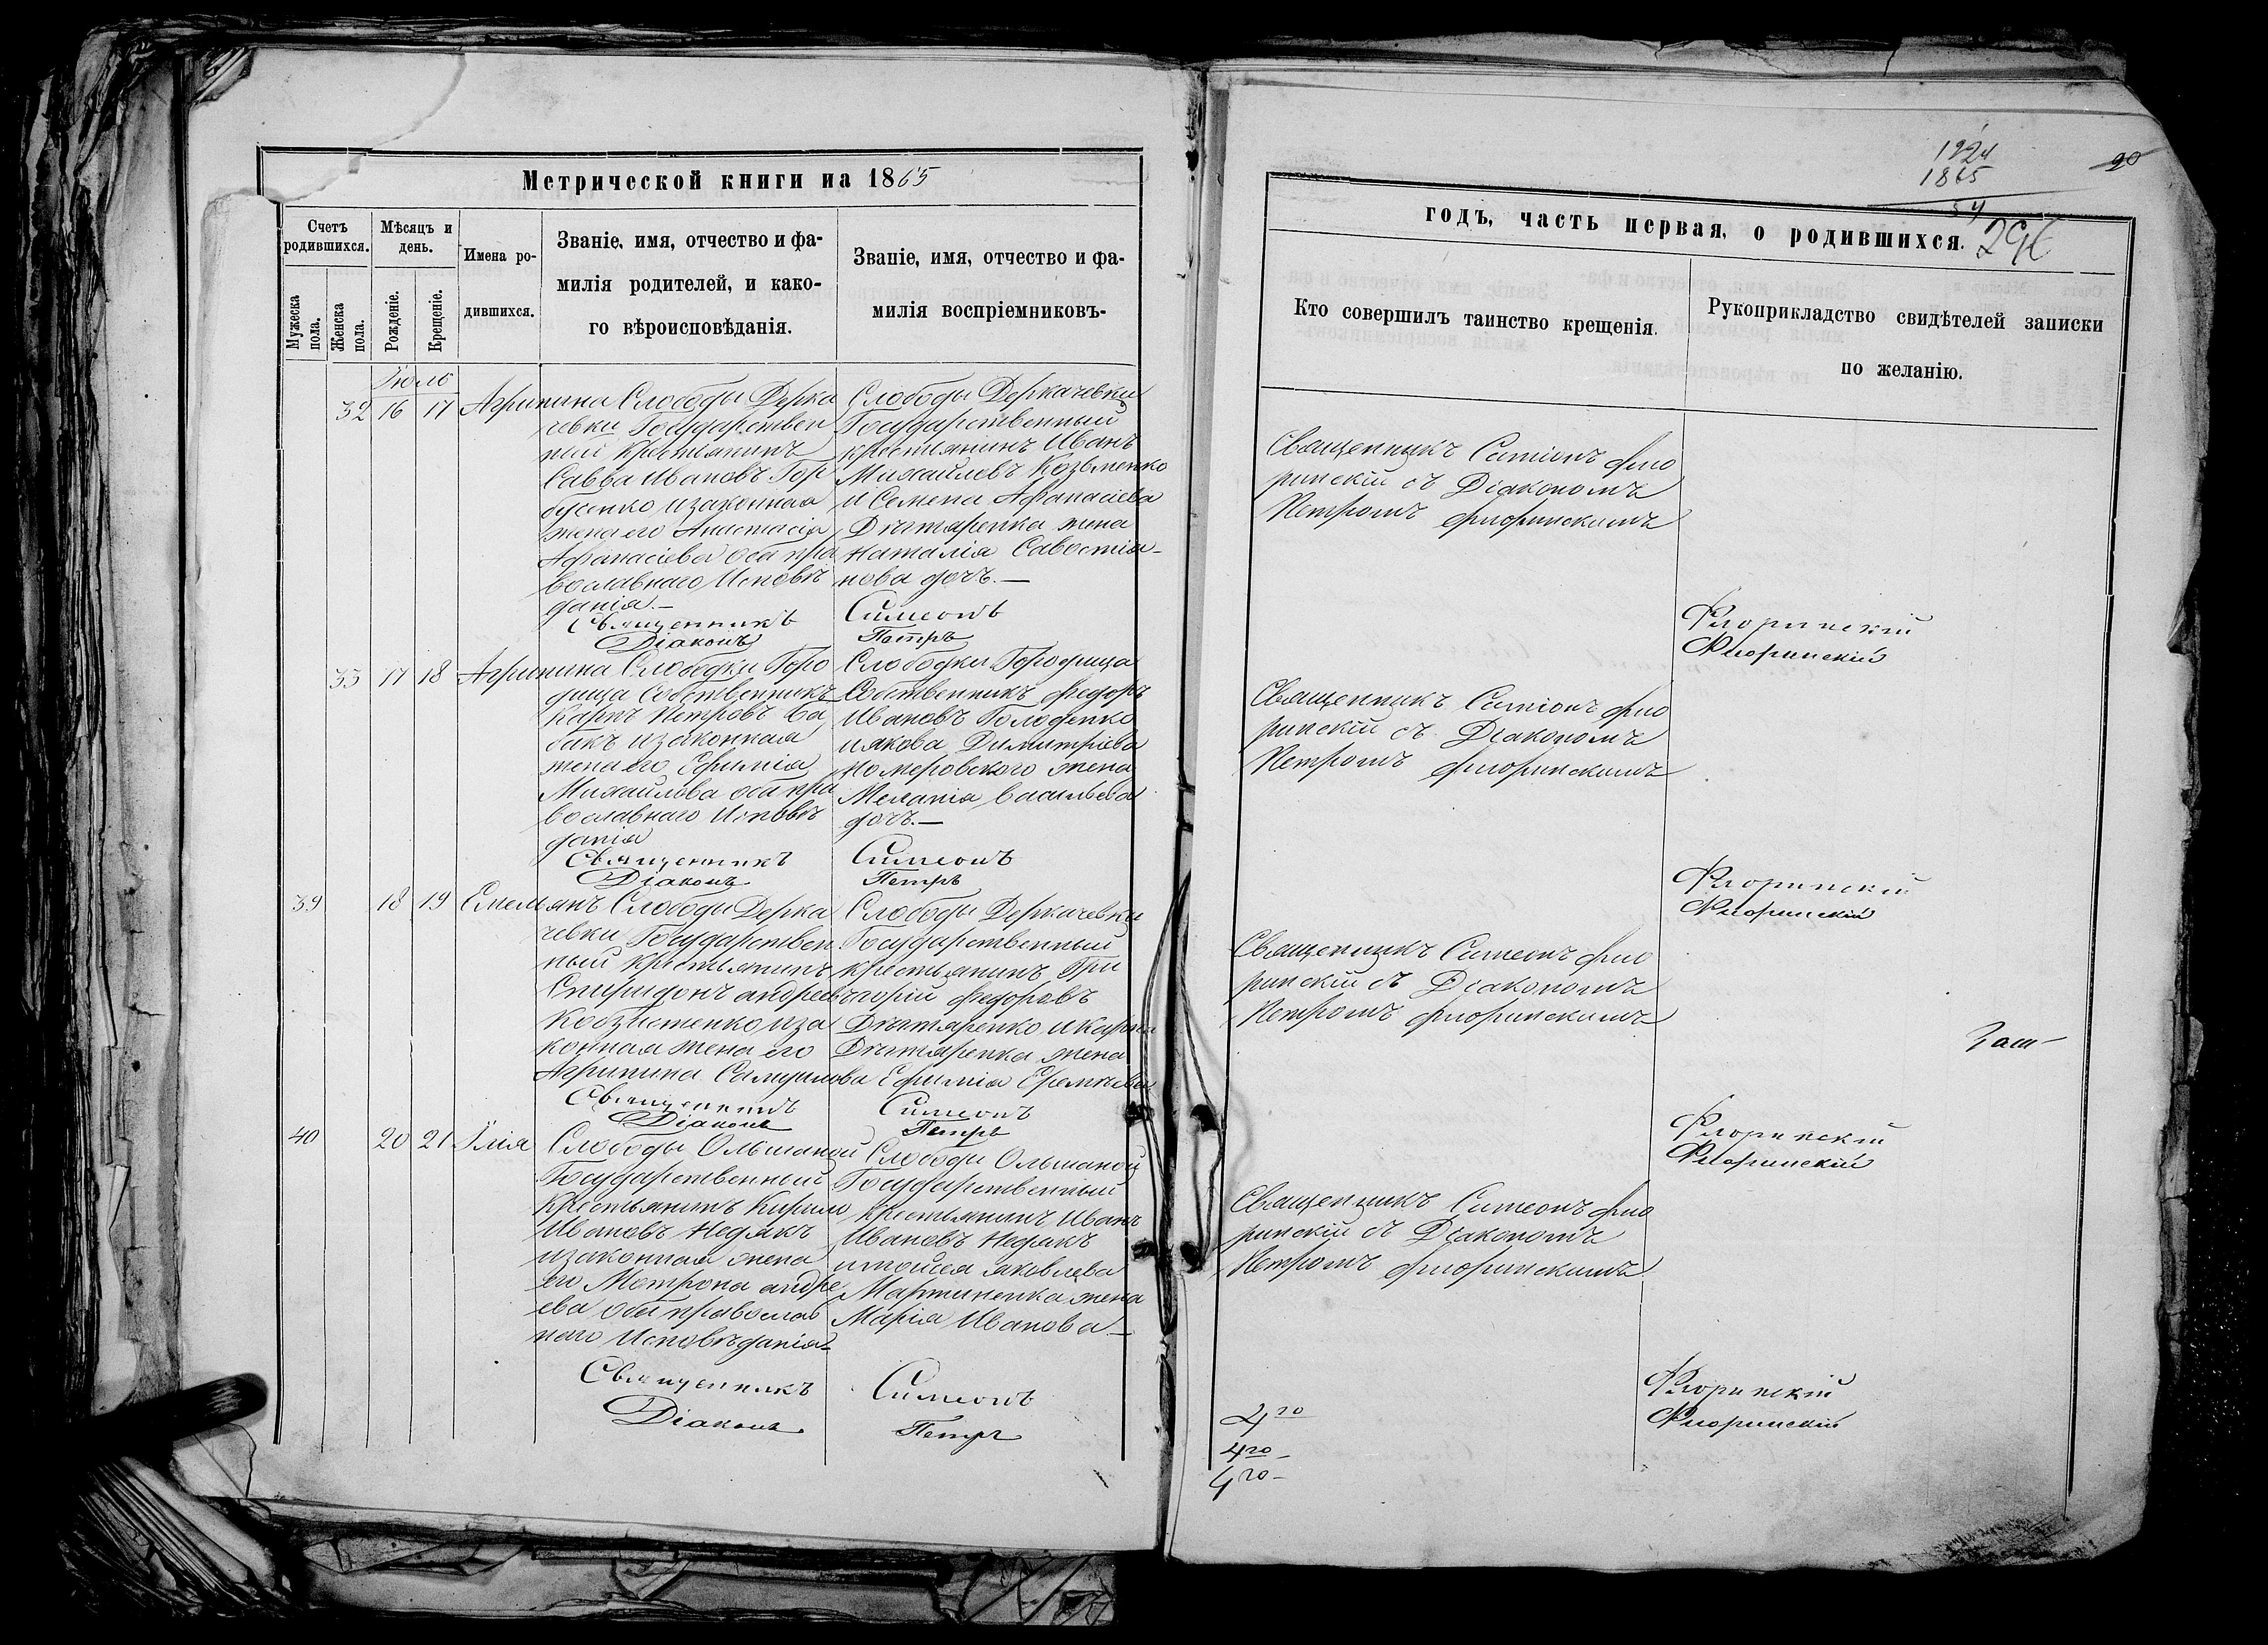 Метрической книги на 1865
Счетъ родившихся.
Мужеска пола.
Женска пола.
Мѣсяцъ и день.
Рожденіе.
Крещеніе.
Имена ро-
дившихся.
Званіе, имя, отчество и фа-
милія родителей, и како-
го вѣроисповѣданія.
Званіе, имя, отчество и фа-
милія воспріемниковъ-
Іюль
32 16 17 Агрипина
Слободы Дерка
чевки Государствен
ный Крестьянинъ
Савва Ивановъ Гор
бусенко и законная
жена его Анастасія
Афанасіева оба пра
вославнаго Исповѣ
данія.—
Слободы Деркачевки
Государственный
крестьянинъ Иванъ
Михайловъ Козьменко
и Семена Афанасіева
Дѣхтяренка жена
Наталія Савостія-
нова дочь.—
Священникъ Симеонъ
Діаконъ Петръ
33 17 18 Агрипина
Слободки Горо
дища Собственникъ
Карпъ Петровъ Ба
бакъ и законная
жена его Ефимія
Михайлова оба пра
вославнаго Исповѣ
данія
Слободки Городища
Собственникъ Федоръ
Ивановъ Голоденко
и Якова Димитріева
Номеровского жена
Меланія Васильева
дочь.—
Священникъ Симеонъ
Діаконъ Петръ
39 18 19 Емельянъ
Слободы Дерка
чевки Государствен
ный крестьянинъ
Спиридонъ Андреевъ
Кобзистенко и за
конная жена его
Агрипина Самуилова
Слободы Деркачевки
Государственный
крестьянинъ Гри
горій Федоровъ
Дѣхтяренко и Карпа
Дѣхтяренка жена
Ефимія Еремѣева
Священникъ Симеонъ
Діаконъ Петръ
40 20 21 Илія
Слободы Ольшаной
Государственный
Крестьянинъ Кирило
Ивановъ Недякъ
и законная жена
его Мотрона Андре
ева оба православ
наго Исповѣданія
Слободы Ольшаной
Государственный
крестьянинъ Иванъ
Ивановъ Недякъ
и Мойсея Яковлева
Мартиненка жена
Марія Иванова—
Священникъ Симеонъ
Діаконъ Петръ
1924
1865
54
90
296
годъ, часть первая, о родившихся.
Кто совершилъ таинство крещенія.
Рукоприкладство свидѣтелей записки
по желанію.
Священникъ Симеонъ Фло
ринскій съ Діакономъ
Петромъ Флоринскимъ
Флоринскій
Флоринскій
Священникъ Симеонъ Фло
ринскій съ Діакономъ
Петромъ Флоринскимъ
Флоринскій
Флоринскій
Священникъ Симеонъ Фло
ринскій съ Діакономъ
Петромъ Флоринскимъ
Флоринскій
Флоринскій
Священникъ Симеонъ Фло
ринскій съ Діакономъ
Петромъ Флоринскимъ
Флоринскій
Флоринскій